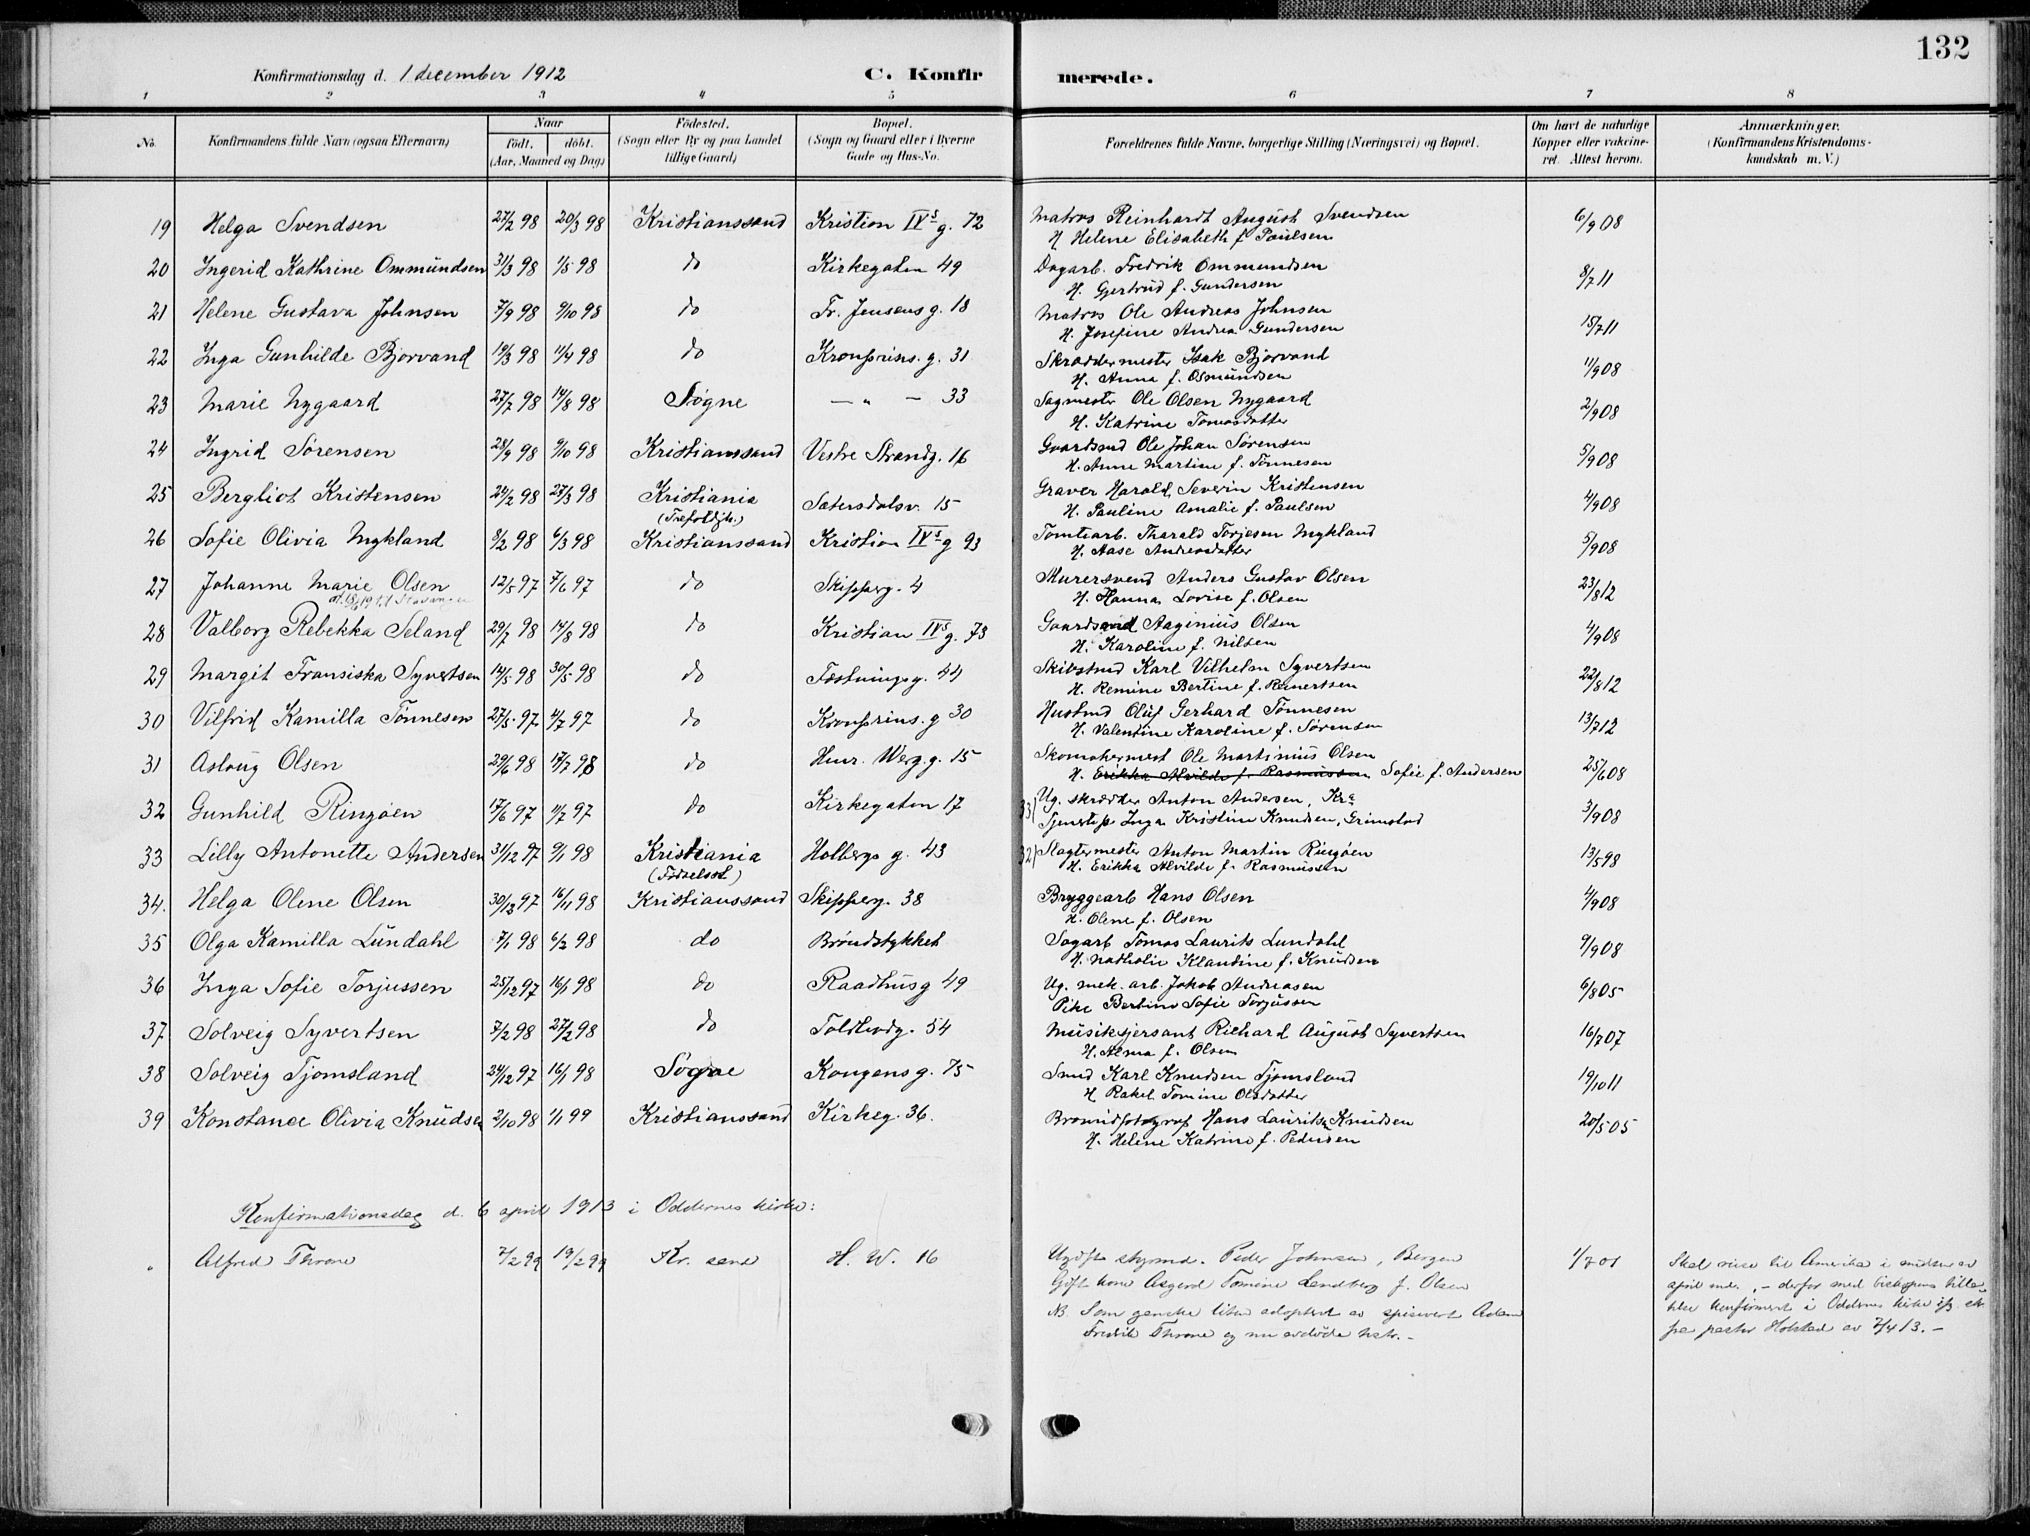 132
Konfirmationsdag d. 1 december 1912 C. Konfirmerede.
1 2 3 4 5 6 7 8
No. Konfirmandens fulde Navn (ogsaa Efternavn) Naar født. døbt. (Aar, Maaned og Dag) Fødested. (Sogn eller By og paa Landet tillige Gaard) Bopæl. (Sogn og Gaard eller i Byerne Gade og Hus-No. Forældrenes fulde Navne, borgerlige Stilling (Næringsvei) og Bopæl. Om havt de naturlige Kopper eller vakcineret. Attest herom. Anmærkninger. (Konfirmandens Kristendomskundskab m. V.)
19 Helga Svendsen 27/2 98 20/3 98 Kristianssand Kristian IVs g. 72 Matros Reinhardt August Svendsen 6/9 08
H Helene Elisabeth f. Paulsen
20 Ingerid Kathrine Ommundsen 31/3 98 1/5 98 do Kirkegaten 49 Dagarb. Fredrik Ommundsen 8/7 11
H. Gjertrud f. Gundersen
21 Helene Gustava Johnsen 7/9 98 9/10 98 do Fr. Jensens g. 18 Matros Ole Andreas Johnsen 15/7 11
H. Josefine Andrea Gundersen
22 Inga Gunhilde Bjorvand 19/3 98 11/4 98 do Kronprins. g. 31 Skræddermester Isak Bjorvand 11/9 08
H. Anna f. Osmundsen
23 Marie Nygaard 27/7 98 14/8 98 Søgne — " — 33 Sagmester Ole Olsen Nygaard 2/9 08
H. Katrine Tomasdatter
24 Ingrid Sørensen 28/9 98 9/10 98 Kristianssand Vestre Strandg. 16 Gaardsmd Ole Johan Sørensen 5/9 08
H. Anne Martine f. Tønnesen
25 Bergliot Kristensen 24/2 98 27/3 98 Kristiania Sætersdalsv. 15 Graver Harald Severin Kristensen 4/9 08
(Trefoldigh.) H. Pauline Amalie f. Paulsen
26 Sofie Olivia Mykland 8/2 98 6/3 98 Kristianssand Kristian IVs g 93 Tomtearb. Tharald Torjesen Mykland 5/9 08
H. Aase Andreasdatter
27 Johanne Marie Olsen 12/5 97 7/6 97 do Skipperg. 4 Murersvend Anders Gustav Olsen 23/8 12
H. Hanna Lovise f. Olsen
28 Valborg Rebekka Seland 29/7 98 14/8 98 do Kristian IVs g. 73 Gaardsmd Aaginius Olsen 4/9 08
H. Karoline f. Nilsen
29 Margit Fransiska Syvertsen 14/5 98 30/5 98 do Fæstningsg. 44 Skibstmd Karl Vilhelm Syvertsen 22/8 12
H. Remine Bertine f. Reinertsen
30 Vilfrid Kamilla Tønnesen 27/5 97 4/7 97 do Kronprins. g 30 Hustmd Oluf Gerhard Tønnesen 13/7 12
H. Valentine Karoline f. Sørensen
31 Aslaug Olsen 29/6 98 17/7 98 do Henr. Werg. g. 15 Skomakermest Ole Martinius Olsen 25/6 08
H. Erikka Alvilde f. Rasmussen Sofie f. Andersen
32 Gunhild Ringøen 17/6 97 11/7 97 do Kirkegaten 17 33) Ug. skrædder Anton Andersen, Kra 3/9 08
Tjenestep. Inga Kristine Knudsen, Grimstad
33 Lilly Antonette Andersen 31/12 97 9/1 98 Kristiania Holbergs g. 43 32) Slagtermester Anton Martin Ringøen 13/5 98
(Fødselsst) H. Erikka Alvilde f. Rasmussen
34. Helga Olene Olsen 30/12 97 16/1 98 Kristianssand Skipperg. 38 Bryggearb Hans Olsen 4/9 08
H. Olene f. Olsen
35 Olga Kamilla Lundahl 7/1 98 6/2 98 do Brøndstykket Sagarb Tomas Laurits Lundahl 9/9 08
H. Nathalie Klaudine f. Knudsen
36 Inga Sofie Torjussen 25/12 97 16/1 98 do Raadhusg 49 Ug. mek. arb. Jakob Andreasen 6/8 05
Pike Bertine Sofie Torjussen
37 Solveig Syvertsen 7/2 98 27/2 98 do Tolsbodg. 54 Musiksjersant Richard August Syvertsen 16/7 07
H. Alma f. Olsen
38 Solveig Tjomsland 24/12 97 16/1 98 Søgne Kongensg. 75 Smed Karl Knudsen Tjomsland 19/10 11
H Rakel Tomine Olsdatter
39 Konstance Olivia Knudsen 2/10 98 1/1 99 Kristianssand Kirkeg. 36. Bromidfotograf Hans Laurits Knudsen 20/5 05
H. Helene Katrine f. Pedersen
Konfirmationsdag d. 6 april 1913 i Oddernes kirke:
" Alfred Throne 7/2 99 19/2 99 Kr. sand H. W. 16 Ugift styrmd. Peder Johnsen, Bergen 1/7 01 Skal reise til Amerika i midten av
Gift kone Asgerd Tomine Lundberg f. Olsen april md., – derfor med biskopens tilla-
NB. Som ganske liten adoptert av spisevert Adam telse konfirmert i Oddernes kirke
Fredrik Throne og nu avdøde hstr. – fra pastor Holsted av 7/4 13. –